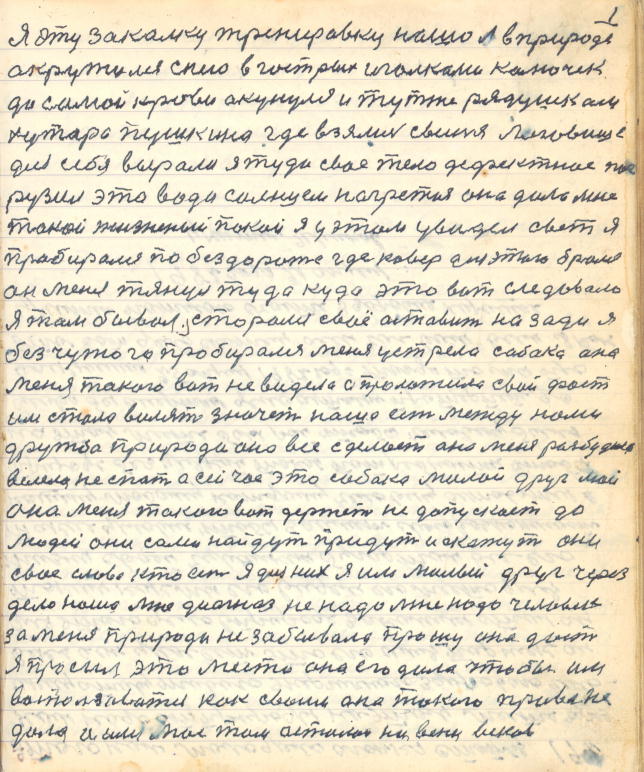 1
Я эту закалку тренировку нашол в природе
акружился снего в гострых иголками калючек
до самой крови акунулся и тут же рядушкам
хутара пушкина где взялись свиния логовище
для себя вырали я туда свае тело дефектное пог
рузил это вода солнцем нагретая она дала мне
такой жизненый покой я у этом увидел свет я
прабирался по бездороже где ковер для этаго брался
он меня тянул туда куда это вот следовало
я там бывал, старался своё аставит на зади я
без чужого пробирался меня устрела сабака она
меня такого вот не видела спаложила свой фост
им стала вилят значет наша ест между нами
дружба природа она все сделает ана меня разбудила
велела не спат а сей час это сабака милой друг мой
она меня такого вот держет не допускает до
людей они сами найдут придут и скажут они
свое слово кто ест я для них я им милый друг через
дело наше мне диагназ не надо мне надо человек
за меня природа не забывала прошу она даст
я просил это место она его дала чтобы им
вотользаватся как своим она такого права не
дала а имя мое там асталос на веки веков